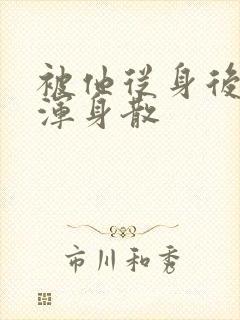 被他從身後
渾身散
市川和秀